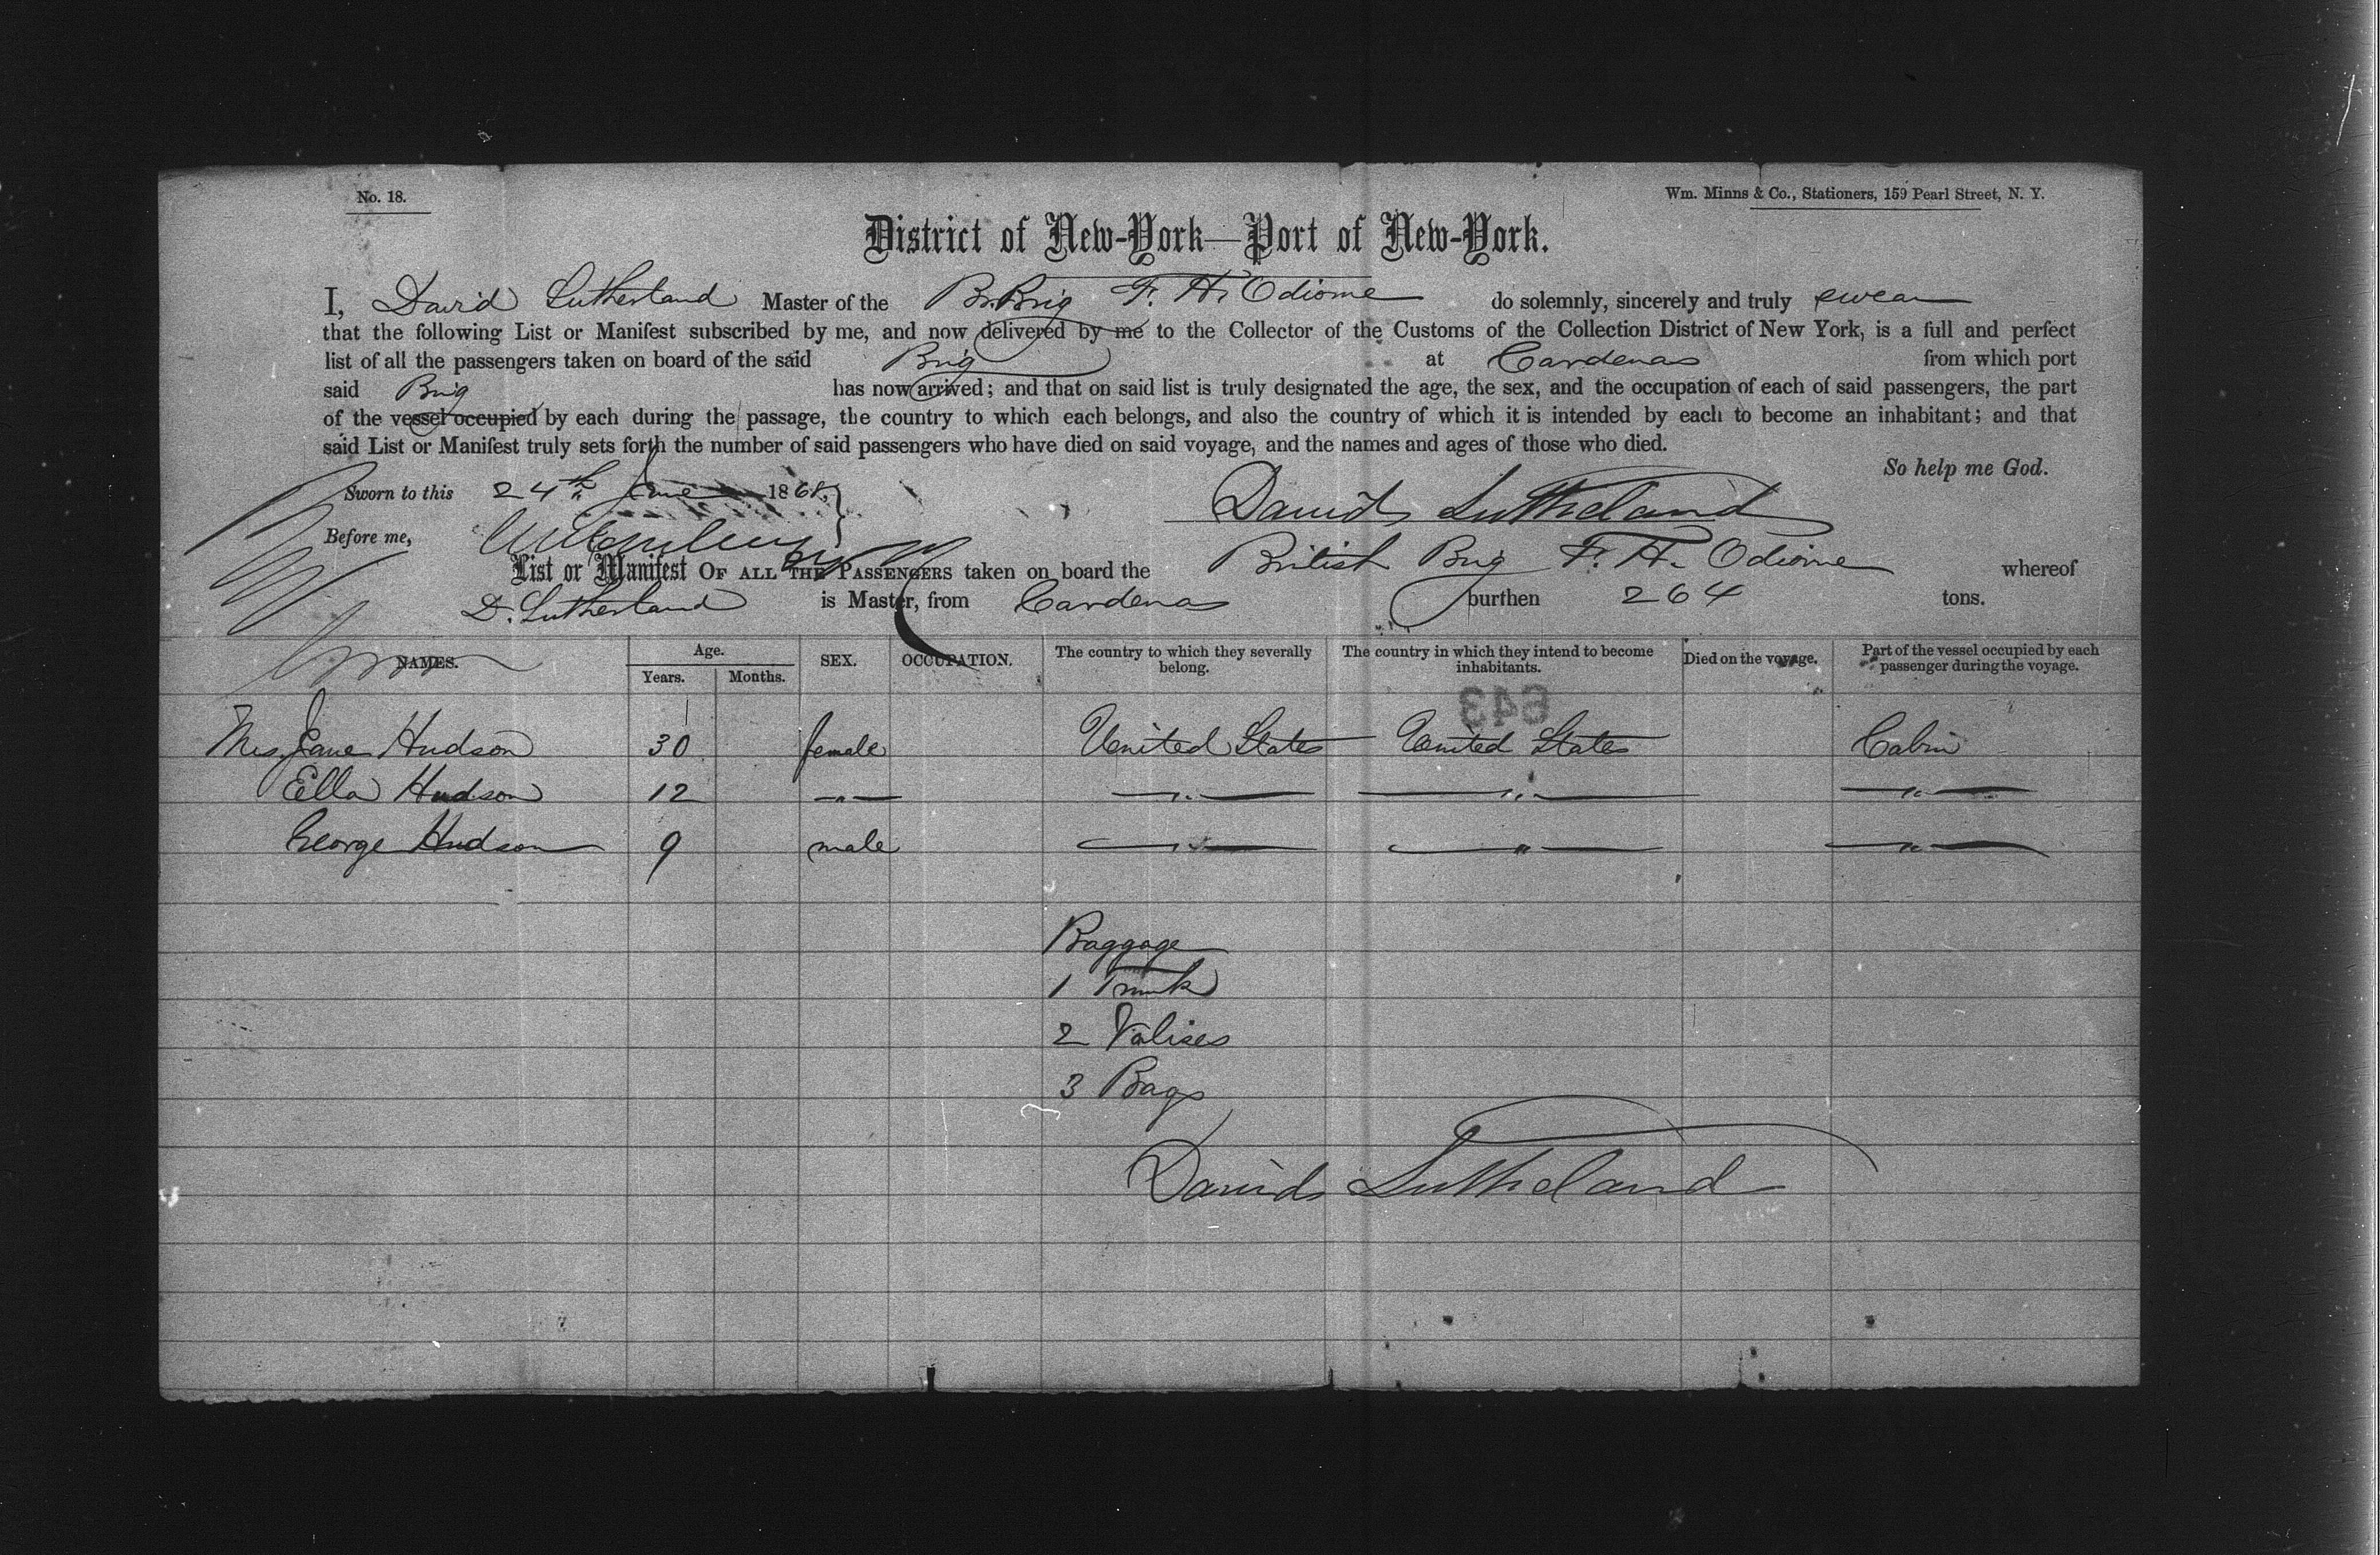 No. 18.
Wm. Minns & Co., Stationers, 159 Pearl Street, N. Y.
District of New-York—Port of New-York.
I, David Sutherland Master of the Br. Brig F. H. Odiorne do solemnly, sincerely and truly swear
that the following List or Manifest subscribed by me, and now delivered by me to the Collector of the Customs of the Collection District of New York, is a full and perfect
list of all the passengers taken on board of the said Brig at Cardenas from which port
said Brig has now arrived; and that on said list is truly designated the age, the sex, and the occupation of each of said passengers, the part
of the vessel occupied by each during the passage, the country to which each belongs, and also the country of which it is intended by each to become an inhabitant; and that
said List or Manifest truly sets forth the number of said passengers who have died on said voyage, and the names and ages of those who died.
So help me God.
Sworn to this 24th June 1868,
David Sutherland
Before me,
List or Manifest OF ALL THE PASSENGERS taken on board the British Brig F. H. Odiorne whereof
D. Sutherland is Master, from Cardenas burthen 264 tons.
NAMES. Age. Years. Months. SEX. OCCUPATION. The country to which they severally belong. The country in which they intend to become inhabitants. Died on the voyage. Part of the vessel occupied by each passenger during the voyage.
643
Mrs. Jane Hudson 30 female United States United States Cabin
Ella Hudson 12 —"— —"— —"— —"—
George Hudson 9 male —"— —"— —"—
Baggage
1 Trunk
2 Valises
3 Bags
David Sutherland